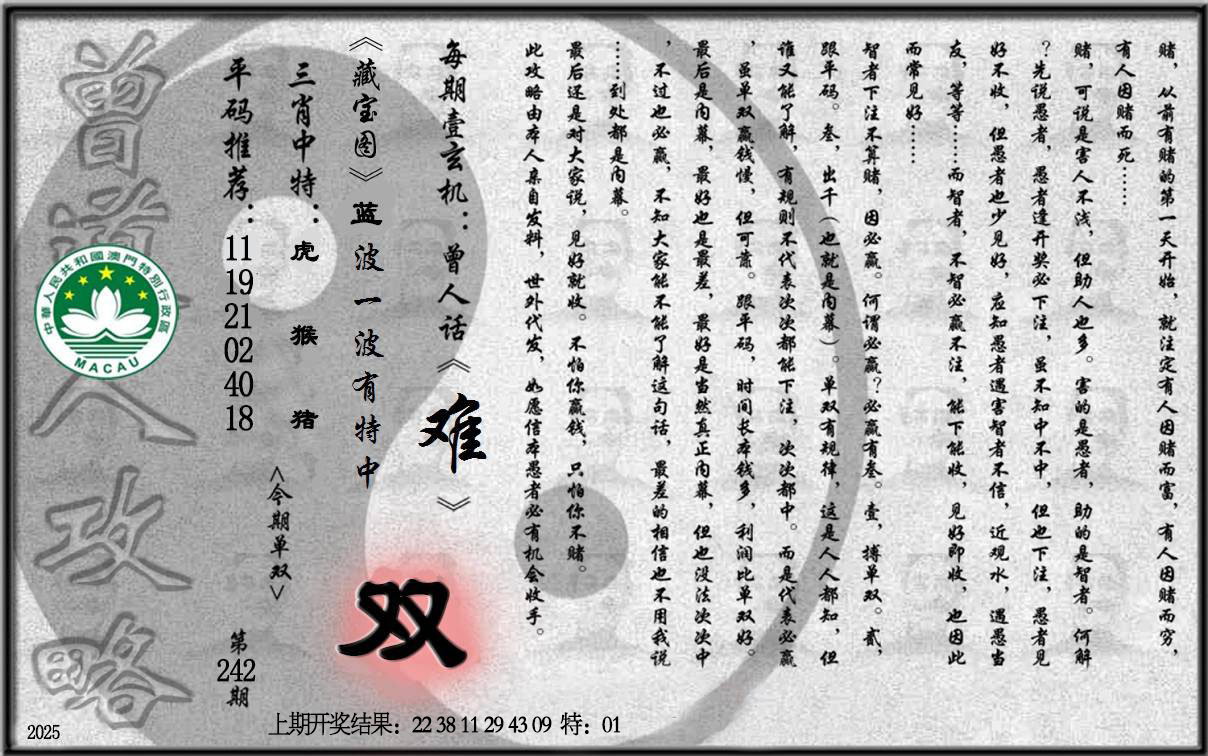 赌，从前有赌的第一天开始，就注定有人因赌而富，有人因赌而穷，
有人因赌而死……
赌，可说是害人不浅，但助人也多。害的是愚者，助的是智者。何解
？先说愚者，愚者逢开奖必下注，虽不知中不中，但也下注，愚者见
好不收，但愚者也少见好，应知愚者遇害智者不信，近观水，遇愚当
友，等等……而智者，不智必赢不注，能下能收，见好即收，也因此
而常见好……
智者下注不算赌，因必赢。何谓必赢？必赢有叁。壹，搏单双。贰，
跟平码。叁，出千（也就是内幕）。单双有规律，这是人人都知，但
谁又能了解，有规则不代表次次都能下注，次次都中。而是代表必赢
，虽单双赢钱慢，但可靠。跟平码，时间长本钱多，利润比单双好。
最后是内幕，最好也是最差，最好是当然真正内幕，但也没法次次中
，不过也必赢，不知大家能不能了解这句话，最差的相信也不用我说
……到处都是内幕。
最后还是对大家说，见好就收。不怕你赢钱，只怕你不赌。
此攻略由本人亲自发料，世外代发，如愿信本愚者必有机会收手。
每期壹玄机：曾人话《难》
《藏宝图》蓝波一波有特中
双
三肖中特：虎 猴 猪
<今期单双>
平码推荐：11 19 21 02 40 18
第242期
曾道人攻略
中華人民共和國澳門特別行政區
MACAU
上期开奖结果：22 38 11 29 43 09 特：01
2025